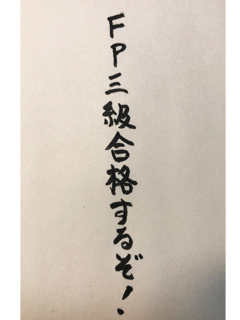 FP三級合格するぞ!